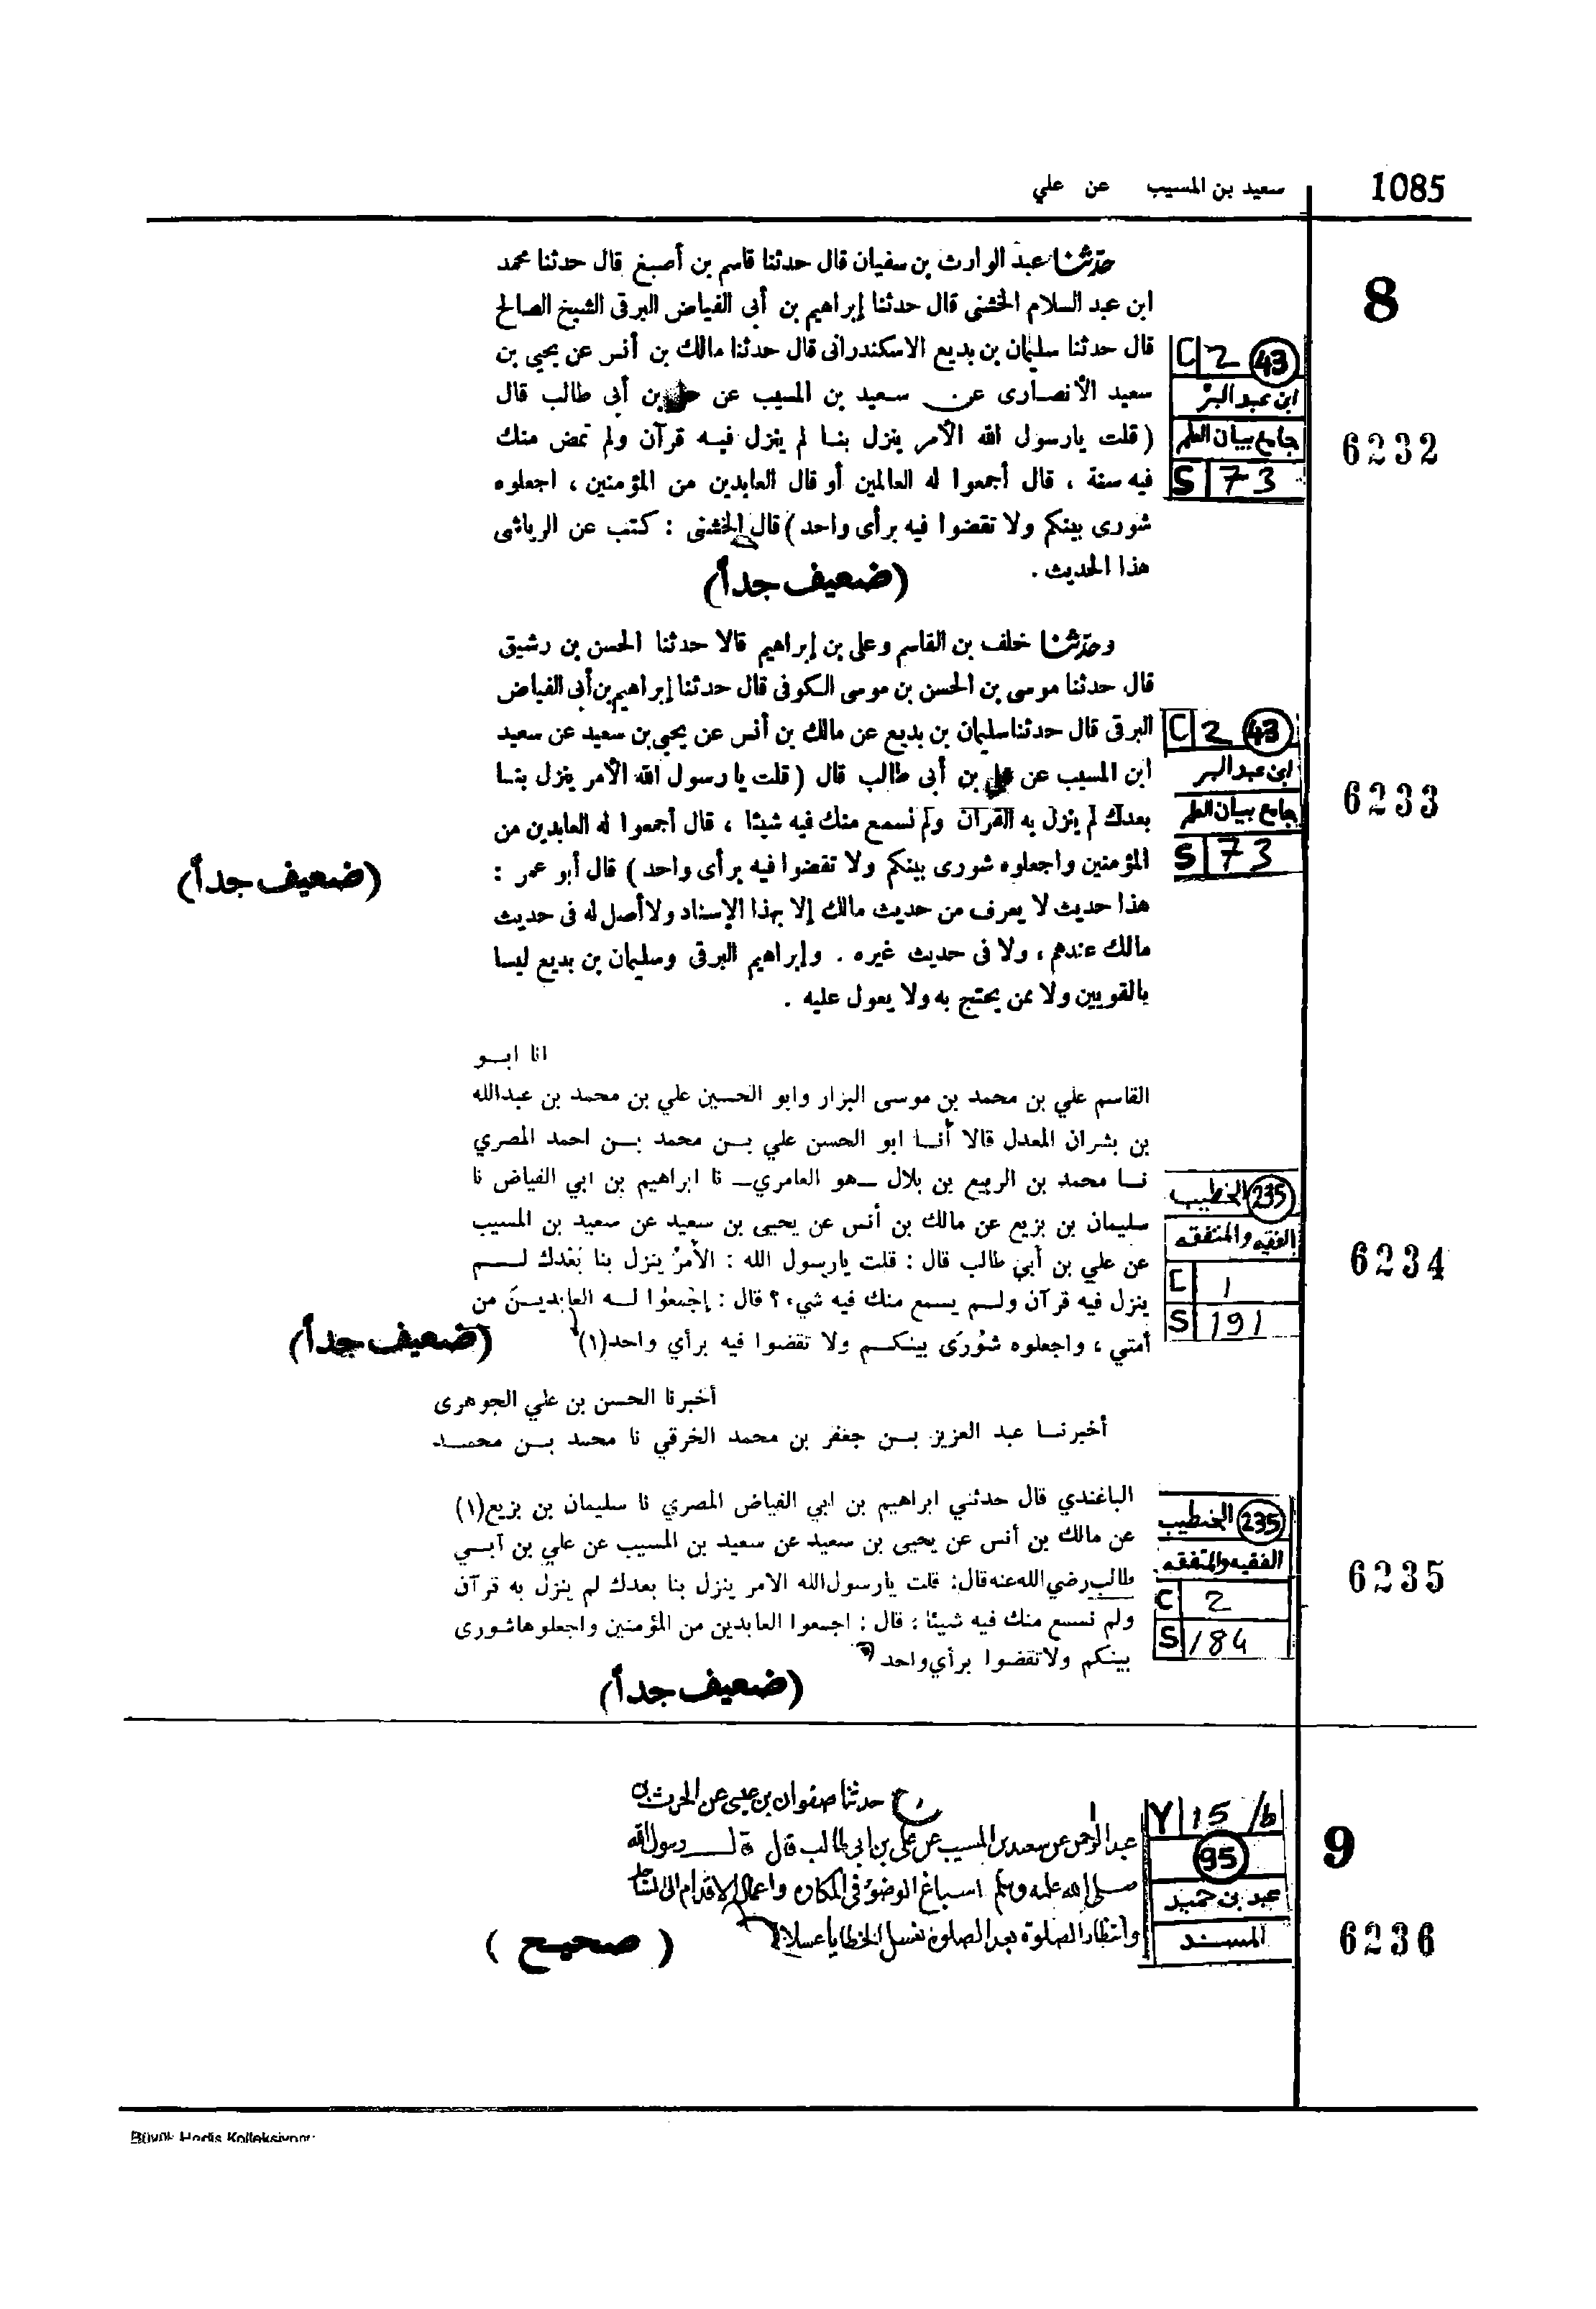 1085
سعيد بن المسيب عن علي
8
حدثنا عبد الوارث بن سفيان قال حدثنا قاسم بن أصبغ قال حدثنا محمد
ابن عبد السلام الخشنى قال حدثنا إبراهيم بن أبى الفياض البرقى الشيخ الصالح
قال حدثنا سليمان بن بديع الاسكندرانى قال حدثنا مالك بن أنس عن يحيى بن
سعيد الأنصارى عن سعيد بن المسيب عن على بن أبى طالب قال
( قلت يارسول الله الأمر ينزل بنا لم ينزل فيه قرآن ولم تمض منك
فيه سنة ، قال أجمعوا له العالمين أو قال العابدين من المؤمنين ، اجعلوه
شورى بينكم ولا تقضوا فيه برأى واحد ) قال الخشنى : كتب عن الرياشى
هذا الحديث .
(ضعيف جداً)
C 2 43
ابن عبد البر
جامع بيان العلم
S 73
6232
وحدثنا خلف بن القاسم وعلى بن إبراهيم قالا حدثنا الحسن بن رشيق
قال حدثنا موسى بن الحسن بن موسى الكوفى قال حدثنا إبراهيم بن أبى الفياض
البرقى قال حدثنا سليمان بن بديع عن مالك بن أنس عن يحيى بن سعيد عن سعيد
ابن المسيب عن على بن أبى طالب قال ( قلت يا رسول الله الأمر ينزل بنا
بعدك لم ينزل به القرآن ولم نسمع منك فيه شيئا ، قال أجمعوا له العابدين من
المؤمنين واجعلوه شورى بينكم ولا تقضوا فيه برأى واحد ) قال أبو عمر :
هذا حديث لا يعرف من حديث مالك إلا بهذا الإسناد ولا أصل له فى حديث
مالك عندهم ، ولا فى حديث غيره . وإبراهيم البرقى وسليمان بن بديع ليسا
بالقويين ولا ممن يحتج به ولا يعول عليه .
(ضعيف جداً)
C 2 43
ابن عبد البر
جامع بيان العلم
S 73
6233
انا ابو
القاسم علي بن محمد بن موسى البزار وابو الحسين علي بن محمد بن عبدالله
بن بشران المعدل قالا أنا ابو الحسن علي بن محمد بن احمد المصري
نا محمد بن الربيع بن بلال ـ هو العامري ـ نا ابراهيم بن ابي الفياض نا
سليمان بن بزيع عن مالك بن أنس عن يحيى بن سعيد عن سعيد بن المسيب
عن علي بن أبي طالب قال : قلت يارسول الله : الأمرُ ينزل بنا بَعْدك لم
ينزل فيه قرآن ولم يسمع منك فيه شيء ؟ قال : إجْمعُوا له العابدينَ من
أمتي ، واجعلوه شُورَى بينكم ولا تقضوا فيه برأي واحد(١)
(ضعيف جداً)
الخطيب 235
الفقيه والمتفقه
C 1
S 191
6234
أخبرنا الحسن بن علي الجوهرى
أخبرنا عبد العزيز بن جعفر بن محمد الخرقي نا محمد بن محمد
الباغندي قال حدثني ابراهيم بن ابي الفياض المصري نا سليمان بن بزيع(١)
عن مالك بن أنس عن يحيى بن سعيد عن سعيد بن المسيب عن علي بن أبي
طالب رضي الله عنه قال: قلت يارسول الله الامر ينزل بنا بعدك لم ينزل به قرآن
ولم نسمع منك فيه شيئا ؛ قال : اجمعوا العابدين من المؤمنين واجعلوها شورى
بينكم ولا تقضوا برأي واحد
(ضعيف جداً)
الخطيب 235
الفقيه والمتفقه
C 2
S 184
6235
9
حدثنا صفوان بن عيسى عن الحرث بن
عبد الرحمن عن سعيد بن المسيب عن على بن ابى طالب قال قال رسول الله
صلى الله عليه وسلم اسباغ الوضوء فى المكاره واعمال الاقدام الى المساجد
وانتظار الصلوة بعد الصلوة يغسل الخطايا غسلا
( صحيح )
Y 15/b
95
عبد بن حميد
المسند
6236
Büyük Hadis Kolleksiyonu